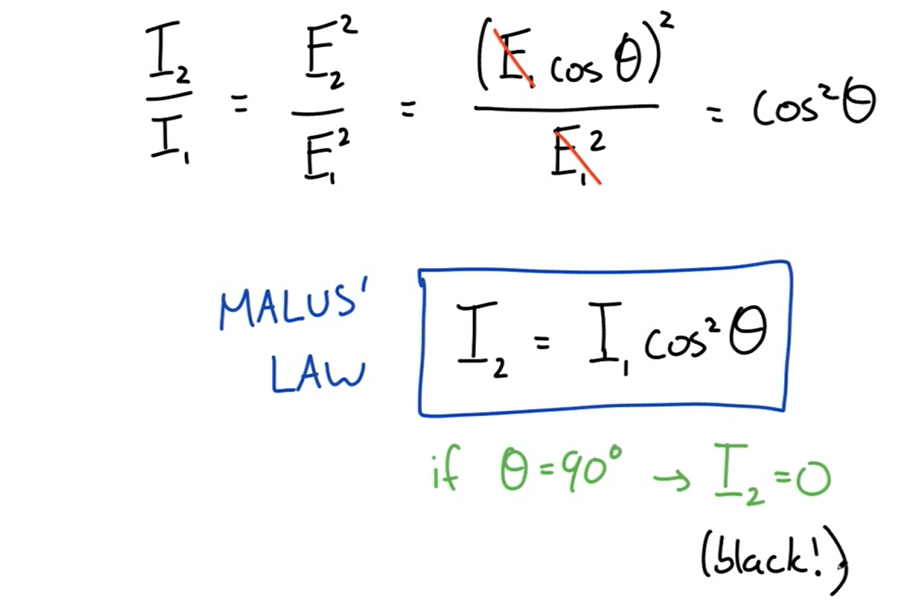 I₂/I₁ = E₂²/E₁² = (E₁ cos θ)²/E₁² = cos²θ
MALUS'
LAW
I₂ = I₁ cos²θ
if θ = 90° → I₂ = 0
(black!)